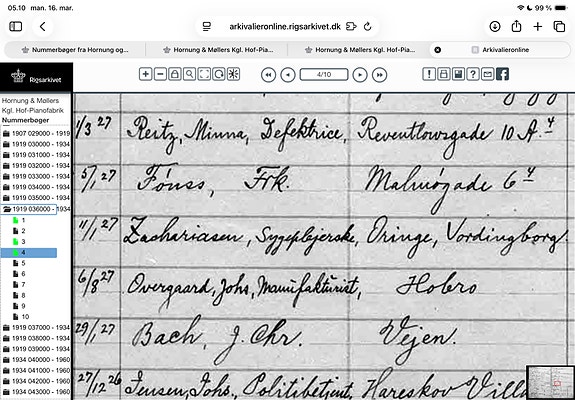 05.10 man. 16. mar.
99 %
arkivalieronline.rigsarkivet.dk
Nummerbøger fra Hornung og...
Hornung & Møllers Kgl. Hof-Pia...
Hornung & Møllers Kgl. Hof-Pia...
Arkivalieronline
Rigsarkivet
4/10
Hornung & Møllers
Kgl. Hof-Pianofabrik
Nummerbøger
1907 029000 - 1919
1919 030000 - 1934
1919 031000 - 1934
1919 032000 - 1934
1919 033000 - 1934
1919 034000 - 1934
1919 035000 - 1934
1919 036000 - 1934
1
2
3
4
5
6
7
8
9
10
1919 037000 - 1934
1919 038000 - 1934
1919 039000 - 1934
1934 040000 - 1960
1934 041000 - 1960
1934 042000 - 1960
1934 043000 - 1960
1/3 27 Reitz, Minna, Defektrice, Reventlowsgade 10 A. 4
5/1 27 Fönss, Frk. Malmøgade 6 4
11/1 27 Zachariasen, Sygeplejerske, Oringe, Vordingborg.
6/8 27 Overgaard, Johs, Manufakturist, Hobro
29/1 27 Bach, J. Chr. Vejen.
27/12 26 Jensen, Johs., Politibetjent, Hareskov